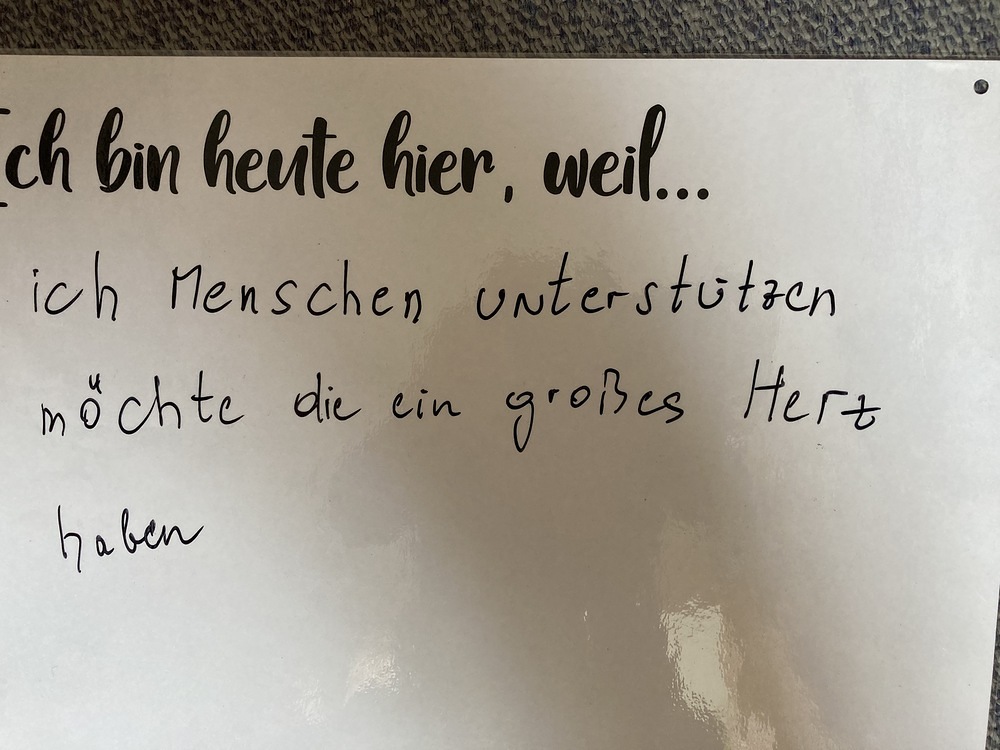 Ich bin heute hier, weil...
ich Menschen unterstützen
möchte die ein großes Herz
haben